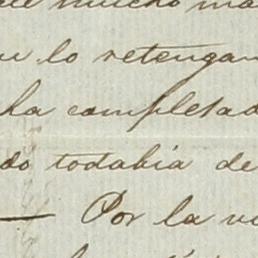 mucho ma
ue lo retengan
ha completad
do todabia de
— Por la vo